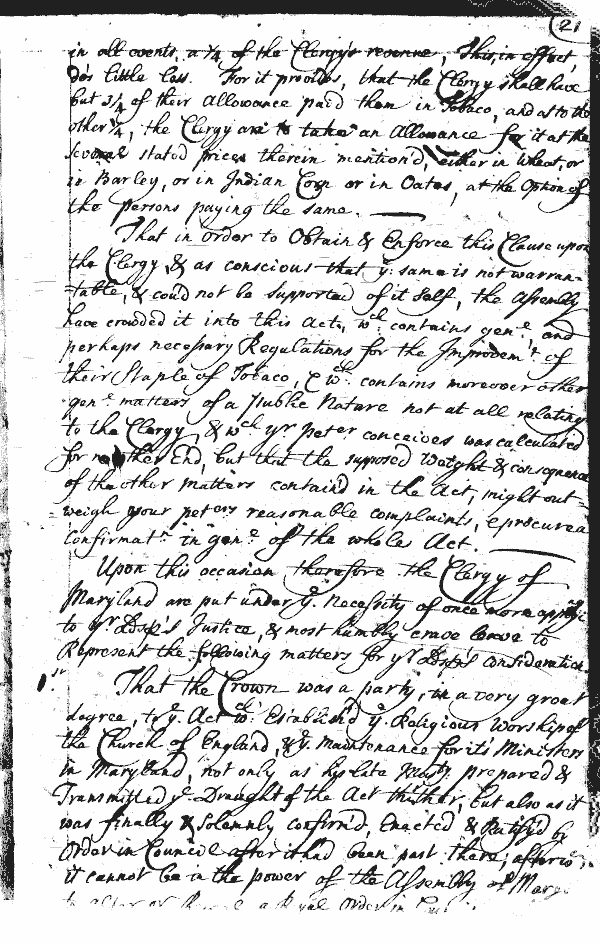 21
in all events, a 1/4 of the Clergy's revenue, This, in effect,
do's little less. For it provides, that the Clergy shall have
but 3/4 of their Allowance paid them in Tobaco, and as to the
other 1/4, the Clergy are to take an Allowance for it at the
several stated prices therein mention'd, either in Wheat, or
in Barley, or in Indian Corn or in Oates, at the Option of
the persons paying the same.
That in order to Obtain & Enforce this Clause upon
the Clergy, & as conscious that ye. same is not warran-
table, & could not be supported of it Self, the Assembly
have crowded it into this Act, wch. contains genl., and
perhaps necessary Regulations for the Improvemt. of
their Staple of Tobaco, & wch. contains moreover other
genl. matters of a publick Nature not at all relating
to the Clergy & wch yr peter conceives was calculated
for no other End, but that the supposed Weight & consequence
of the other matters containd in the Act, might out-
weigh your peters reasonable complaints, & procure a
Confirmatn. in genl. of the whole Act.
Upon this occasion therefore the Clergy of
Maryland are put under ye. Necessity of once more
to yr. Ldsps Justice, & most humbly crave leave to
Represent the following matters for yr Ldsps consideration
1st.
That the Crown was a party, in a very great
degree, to ye. Act wch. Establish'd ye. Religious Worship of
the Church of England, & ye. Maintenance for its Ministers
in Maryland, not only as his late Majty. prepared &
Transmitted ye Draught of the Act thither, but also as it
was finally & Solemnly confirm'd, Enacted & Ratify'd by
Order in Council after it had been past there;
it cannot be in the power of the Assembly of Mary
to alter or a Royal Order in